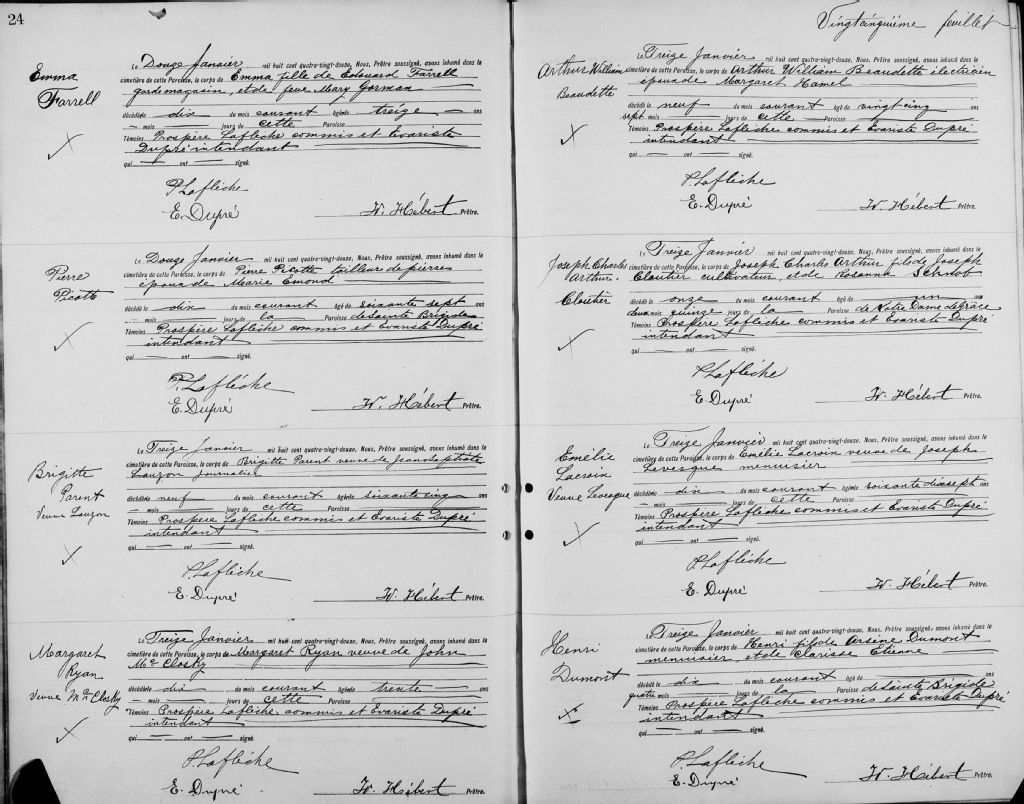 24
Emma
Farrell
Le Douze Janvier mil huit cent quatre-vingt-douze. Nous, Prêtre soussigné, avons inhumé dans le
cimetière de cette Paroisse, le corps de Emma fille de Edouard Farrell
garde magasin, et de feue Mary Gorman
décédée le dix du mois courant âgée de treize ans
— mois — jours de cette Paroisse
Témoins Prospère Laflèche commis et Evariste
Dupré intendant
qui — ont — signé.
P. Laflèche
E. Dupré
W. Hébert Prêtre.
Pierre
Picotte
Le Douze Janvier mil huit cent quatre-vingt-douze. Nous, Prêtre soussigné, avons inhumé dans le
cimetière de cette Paroisse, le corps de Pierre Picotte tailleur de pierres
époux de Marie Emond
décédé le dix du mois courant âgé de soixante sept ans
— mois — jours de la Paroisse de Sainte Brigide
Témoins Prospère Laflèche commis et Evariste Dupré
intendant
qui — ont — signé.
P. Laflèche
E. Dupré
W. Hébert Prêtre.
Brigitte
Parent
Veuve Lauzon
Le Treize Janvier mil huit cent quatre-vingt-douze. Nous, Prêtre soussigné, avons inhumé dans le
cimetière de cette Paroisse, le corps de Brigitte Parent veuve de Jean Baptiste
Lauzon journalier
décédée le neuf du mois courant âgée de soixante cinq ans
— mois — jours de cette Paroisse
Témoins Prospère Laflèche commis et Evariste Dupré
intendant
qui — ont — signé.
P. Laflèche
E. Dupré
W. Hébert Prêtre.
Margaret
Ryan
Veuve Mc Closky
Le Treize Janvier mil huit cent quatre-vingt-douze. Nous, Prêtre soussigné, avons inhumé dans le
cimetière de cette Paroisse, le corps de Margaret Ryan veuve de John
Mc Closky
décédée le dix du mois courant âgée de trente ans
— mois — jours de cette Paroisse
Témoins Prospère Laflèche commis et Evariste Dupré
intendant
qui — ont — signé.
P. Laflèche
E. Dupré
W. Hébert Prêtre.
Vingtcinquième feuillet
Arthur William
Beaudette
Le Treize Janvier mil huit cent quatre-vingt-douze. Nous, Prêtre soussigné, avons inhumé dans le
cimetière de cette Paroisse, le corps de Arthur William Beaudette électricien
époux de Margaret Hamel
décédé le neuf du mois courant âgé de vingt cinq ans
sept mois — jours de cette Paroisse
Témoins Prospère Laflèche commis et Evariste Dupré
intendant
qui — ont — signé.
P. Laflèche
E. Dupré
W. Hébert Prêtre.
Joseph Charles
Arthur.
Cloutier
Le Treize Janvier mil huit cent quatre-vingt-douze. Nous, Prêtre soussigné, avons inhumé dans le
cimetière de cette Paroisse, le corps de Joseph Charles Arthur fils de Joseph
Cloutier cultivateur, et de Rosanna
décédé le onze du mois courant âgé de un ans
deux mois quinze jours de la Paroisse de Notre Dame de Grâce
Témoins Prospère Laflèche commis et Evariste Dupré
intendant
qui — ont — signé.
P. Laflèche
E. Dupré
W. Hébert Prêtre.
Emélie
Lacroix
Veuve Levesque
Le Treize Janvier mil huit cent quatre-vingt-douze. Nous, Prêtre soussigné, avons inhumé dans le
cimetière de cette Paroisse, le corps de Emélie Lacroix veuve de Joseph
Levesque menuisier
décédée le dix du mois courant âgée de soixante dix sept ans
— mois — jours de cette Paroisse
Témoins Prospère Laflèche commis et Evariste Dupré
intendant
qui — ont — signé.
P. Laflèche
E. Dupré
W. Hébert Prêtre.
Henri
Dumont
Le Treize Janvier mil huit cent quatre-vingt-douze. Nous, Prêtre soussigné, avons inhumé dans le
cimetière de cette Paroisse, le corps de Henri fils de Arsène Dumont
menuisier, et de Clarisse Etienne
décédé le dix du mois courant âgé de — ans
quatre mois — jours de la Paroisse de Sainte Brigide
Témoins Prospère Laflèche commis et Evariste Dupré
intendant
qui — ont — signé.
P. Laflèche
E. Dupré
W. Hébert Prêtre.